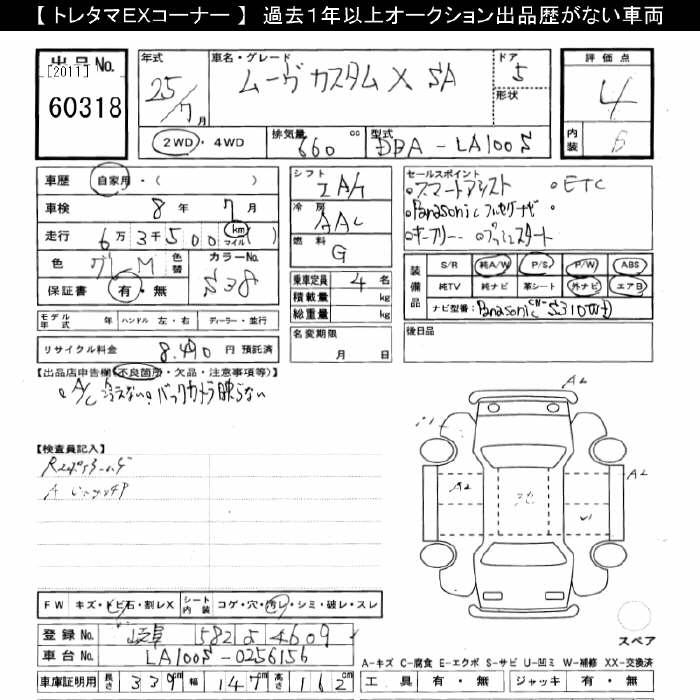 【 トレタマEXコーナー 】 過去1年以上オークション出品歴がない車両
出品No.
[2011]
60318
年式
25/7月
車名・グレード
ムーヴ カスタム X SA
ドア
5
形状
評価点
4
内装
B
2WD・4WD
排気量
660 cc
型式
DBA-LA100S
車歴 自家用・( )
車検 8年7月
走行 6万3千500 km マイル ( )
色 グレーM 色替
カラーNo.
S38
保証書 有・無
モデル年式 年 ハンドル 左・右 ディーラー・並行
リサイクル料金 8.490 円 預託済
シフト
IAT
冷房
AAC
燃料
G
乗車定員 4 名
積載量 kg
総重量 kg
名変期限
月 日
セールスポイント
・スマートアシスト ・ETC
・Panasonicフルセグナビ
・キーフリー ・プッシュスタート
装備品
S/R 純A/W P/S P/W ABS
純TV 純ナビ 革シート 外ナビ エアB
ナビ型番: Panasonic CN-S310WD
後日品
【出品店申告欄(不良箇所・欠品・注意事項等)】
・A/C 冷えない・バックカメラ映らない
【検査員記入】
FW キズ・トビ石・割レX
シート内装 コゲ・穴・汚レ・シミ・破レ・スレ
登録No. 岐阜 582 4609
車台No. LA100S-0256156
車庫証明用 長さ 339cm 幅 147cm 高さ 162cm
AL
A2
AL
スペア
A-キズ C-腐食 E-エクボ S-サビ U-凹ミ W-補修 XX-交換済
工具 有・無 ジャッキ 有・無